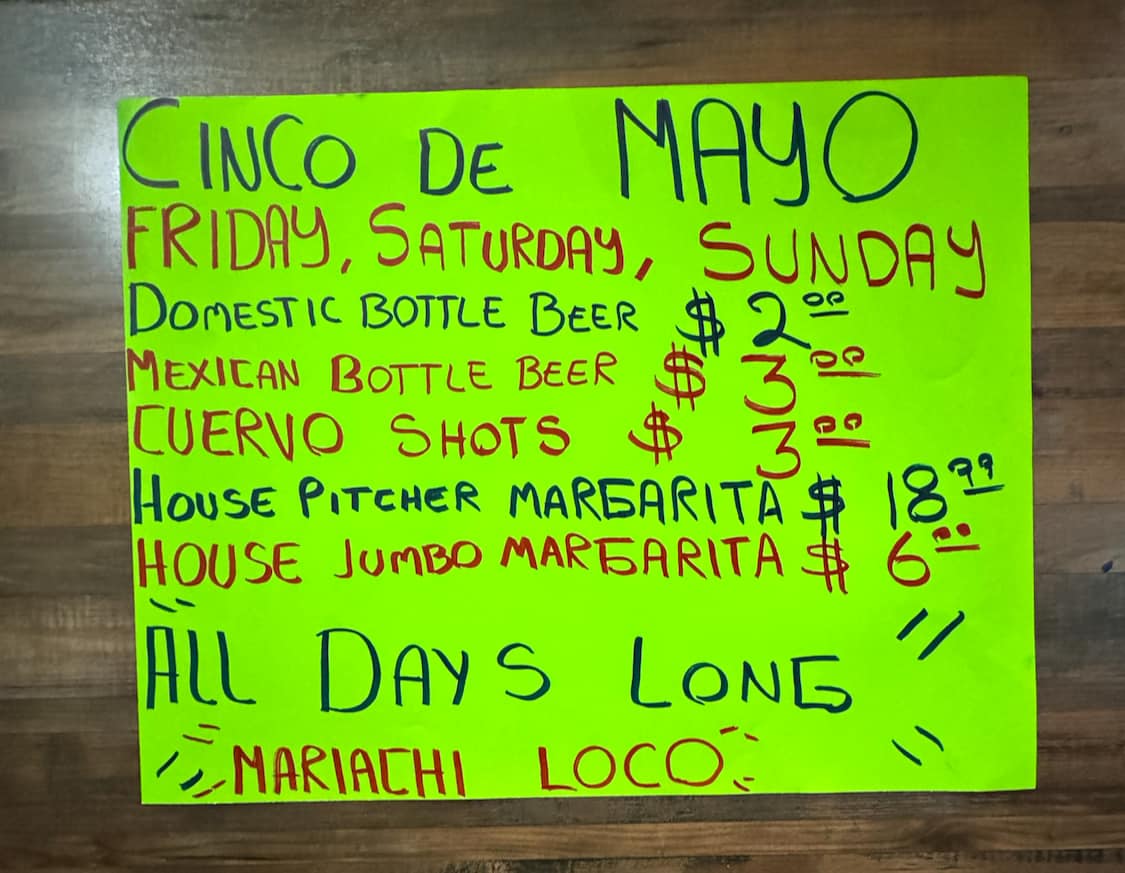 CINCO DE MAYO
FRIDAY, SATURDAY, SUNDAY
DOMESTIC BOTTLE BEER $ 2.00
MEXICAN BOTTLE BEER $ 3.00
CUERVO SHOTS $ 3.00
HOUSE PITCHER MARGARITA $ 18.99
HOUSE JUMBO MARGARITA $ 6.00
"ALL DAYS LONG"
MARIACHI LOCO